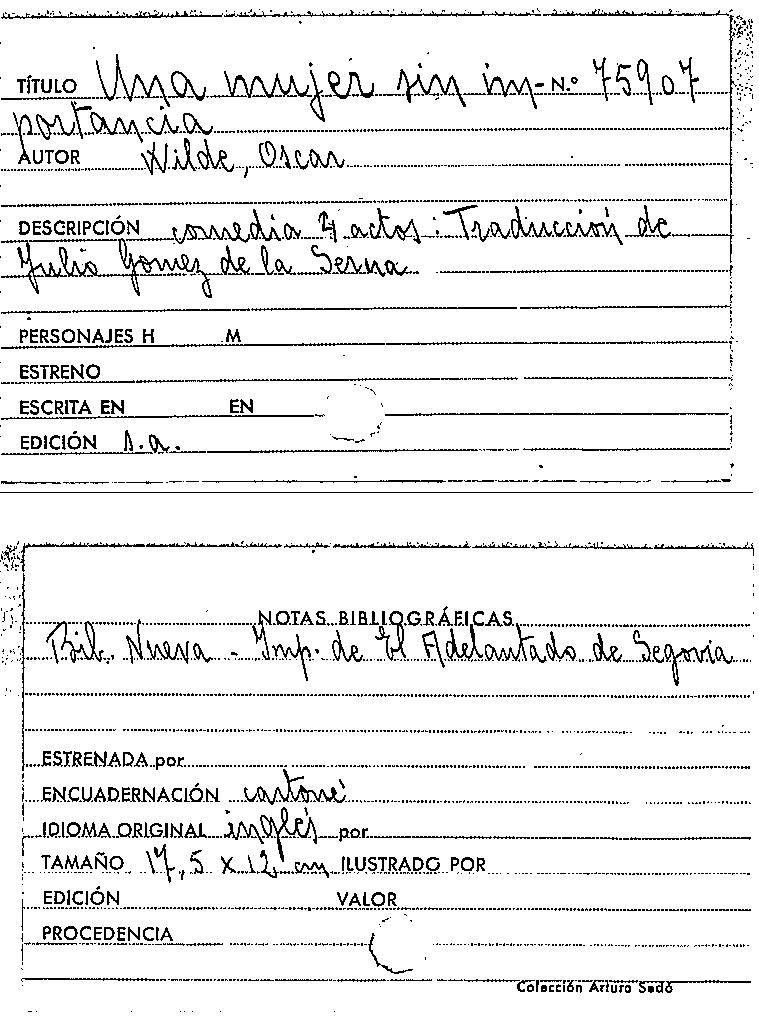 TÍTULO Una mujer sin im- N.º 75907
portancia
AUTOR Wilde, Oscar
DESCRIPCIÓN comedia 4 actos: Traducción de
Julio Gomez de la Serna
PERSONAJES H M
ESTRENO
ESCRITA EN EN
EDICIÓN s.a.
NOTAS BIBLIOGRÁFICAS
Bib. Nueva - Imp. de El Adelantado de Segovia
ESTRENADA por
ENCUADERNACIÓN cartoné
IDIOMA ORIGINAL inglés por
TAMAÑO 17,5 x 12 cm ILUSTRADO POR
EDICIÓN VALOR
PROCEDENCIA
Colección Arturo Sedó